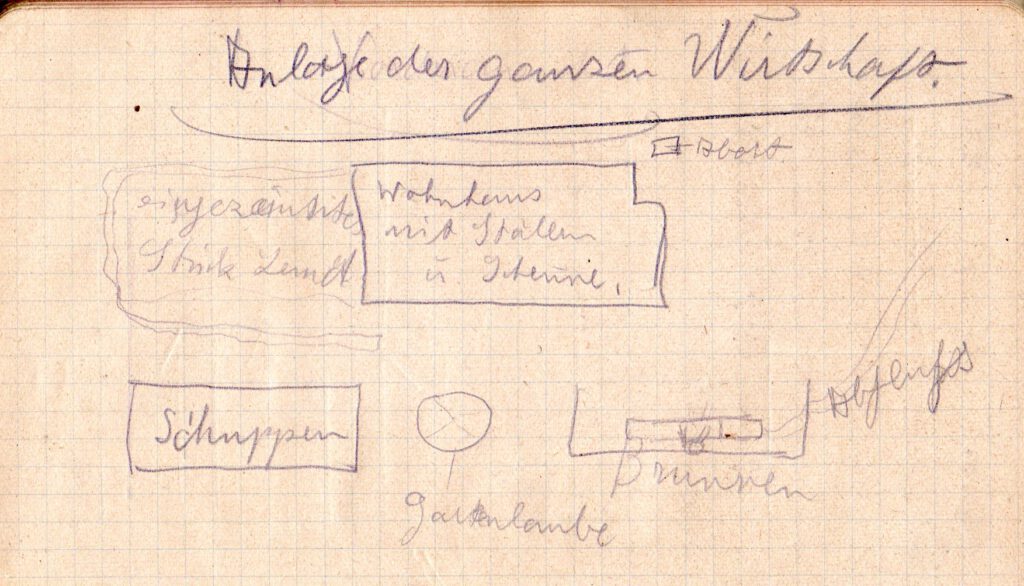 Anlage der ganzen Wirtschaft.
Abort
eingezäuntes
Stück Land
Wohnhaus
mit Ställen
u. Scheune.
Schuppen
Gartenlaube
Brunnen
Abfluß